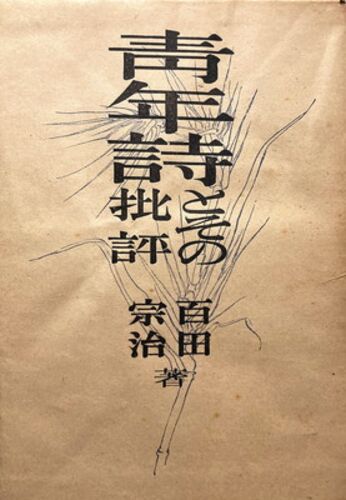 青年詩とその
批評
百田
宗治
著